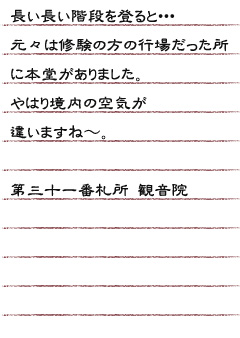 長い長い階段を登ると・・・
元々は修験の方の行場だった所
に本堂がありました。
やはり境内の空気が
違いますね～。
第三十一番札所 観音院